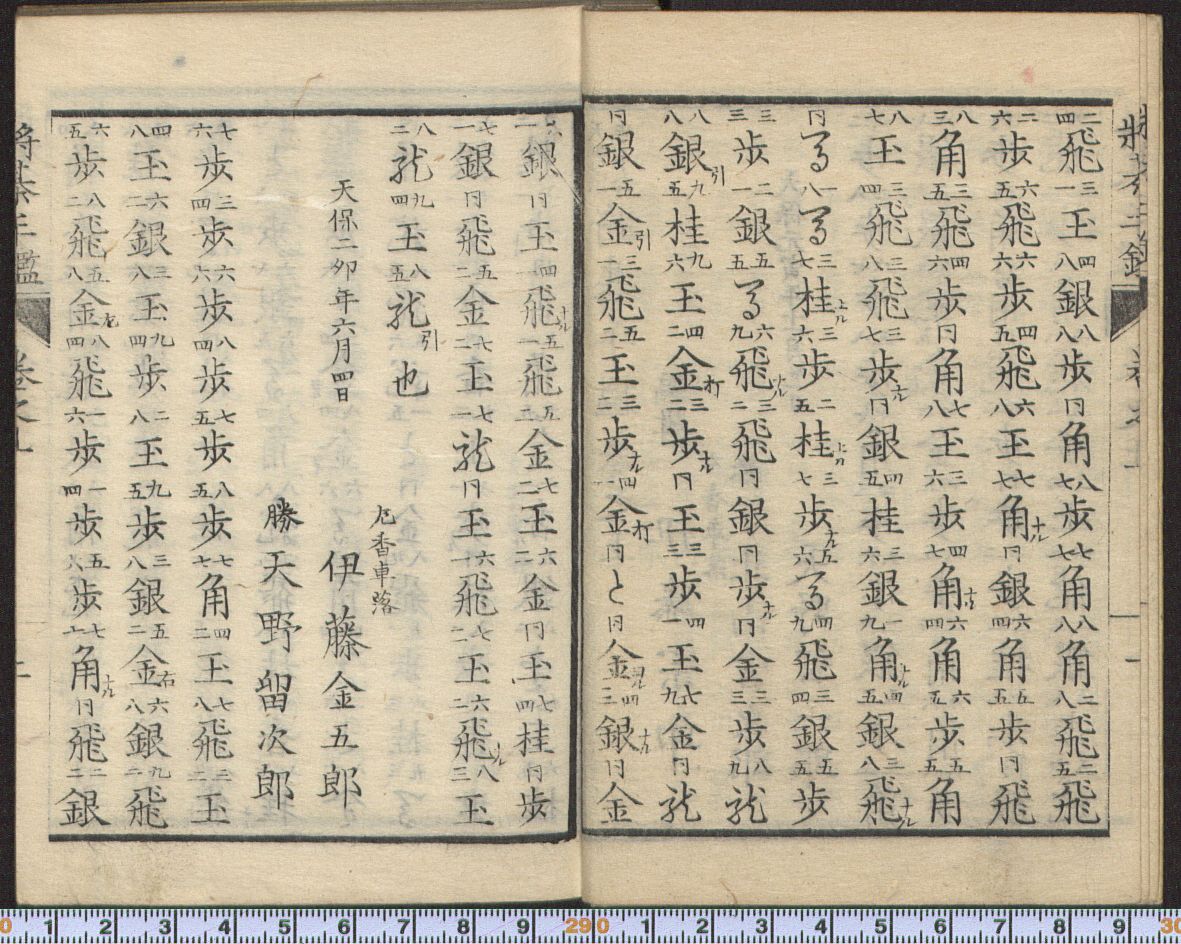 二四飛三一玉四八銀八八歩同角八七歩七七角八八角二八飛二五飛
二六歩六五飛六六歩四五飛六八玉七七角ナル同銀六四角五五歩同飛
八三角三五飛四六歩同角七八玉三六歩四七角ナル六四角六五歩五五角
八七玉三四飛三八飛三七歩ナル同銀四五桂三六銀一九角ナル四五銀三八飛ナル
同馬一八馬三七桂上ル三六歩二五桂上ル三七歩ナル五六馬四九飛三四銀五五歩
三三歩二一銀五五馬六九飛ナル三二飛同銀同歩ナル同金三三歩八九龍
八八銀引九五桂九六玉四二金打三二歩ナル同玉三三歩四一玉七九金同龍
同銀五一金引三一飛五二玉三二歩ナル四一金打同と同金四三銀ナル同金
六一銀同玉四一飛ナル五一飛五二金七二玉六二金同玉七四桂同歩
七一銀同飛五二金七二玉七一龍同玉六一飛七二玉六二飛ナル八三玉
八二龍九四玉八五龍引也
天保二卯年六月四日
左香車落
伊藤金五郎
勝天野留次郎
七六歩三四歩六六歩八四歩七五歩八五歩七七角四二玉七八飛三二玉
四八玉六二銀三八玉九四歩二八玉九五歩三八銀五二金右六八銀九二飛
六五歩八二飛五八金左八四飛一六歩一四歩五六歩七七角ナル同飛二二銀